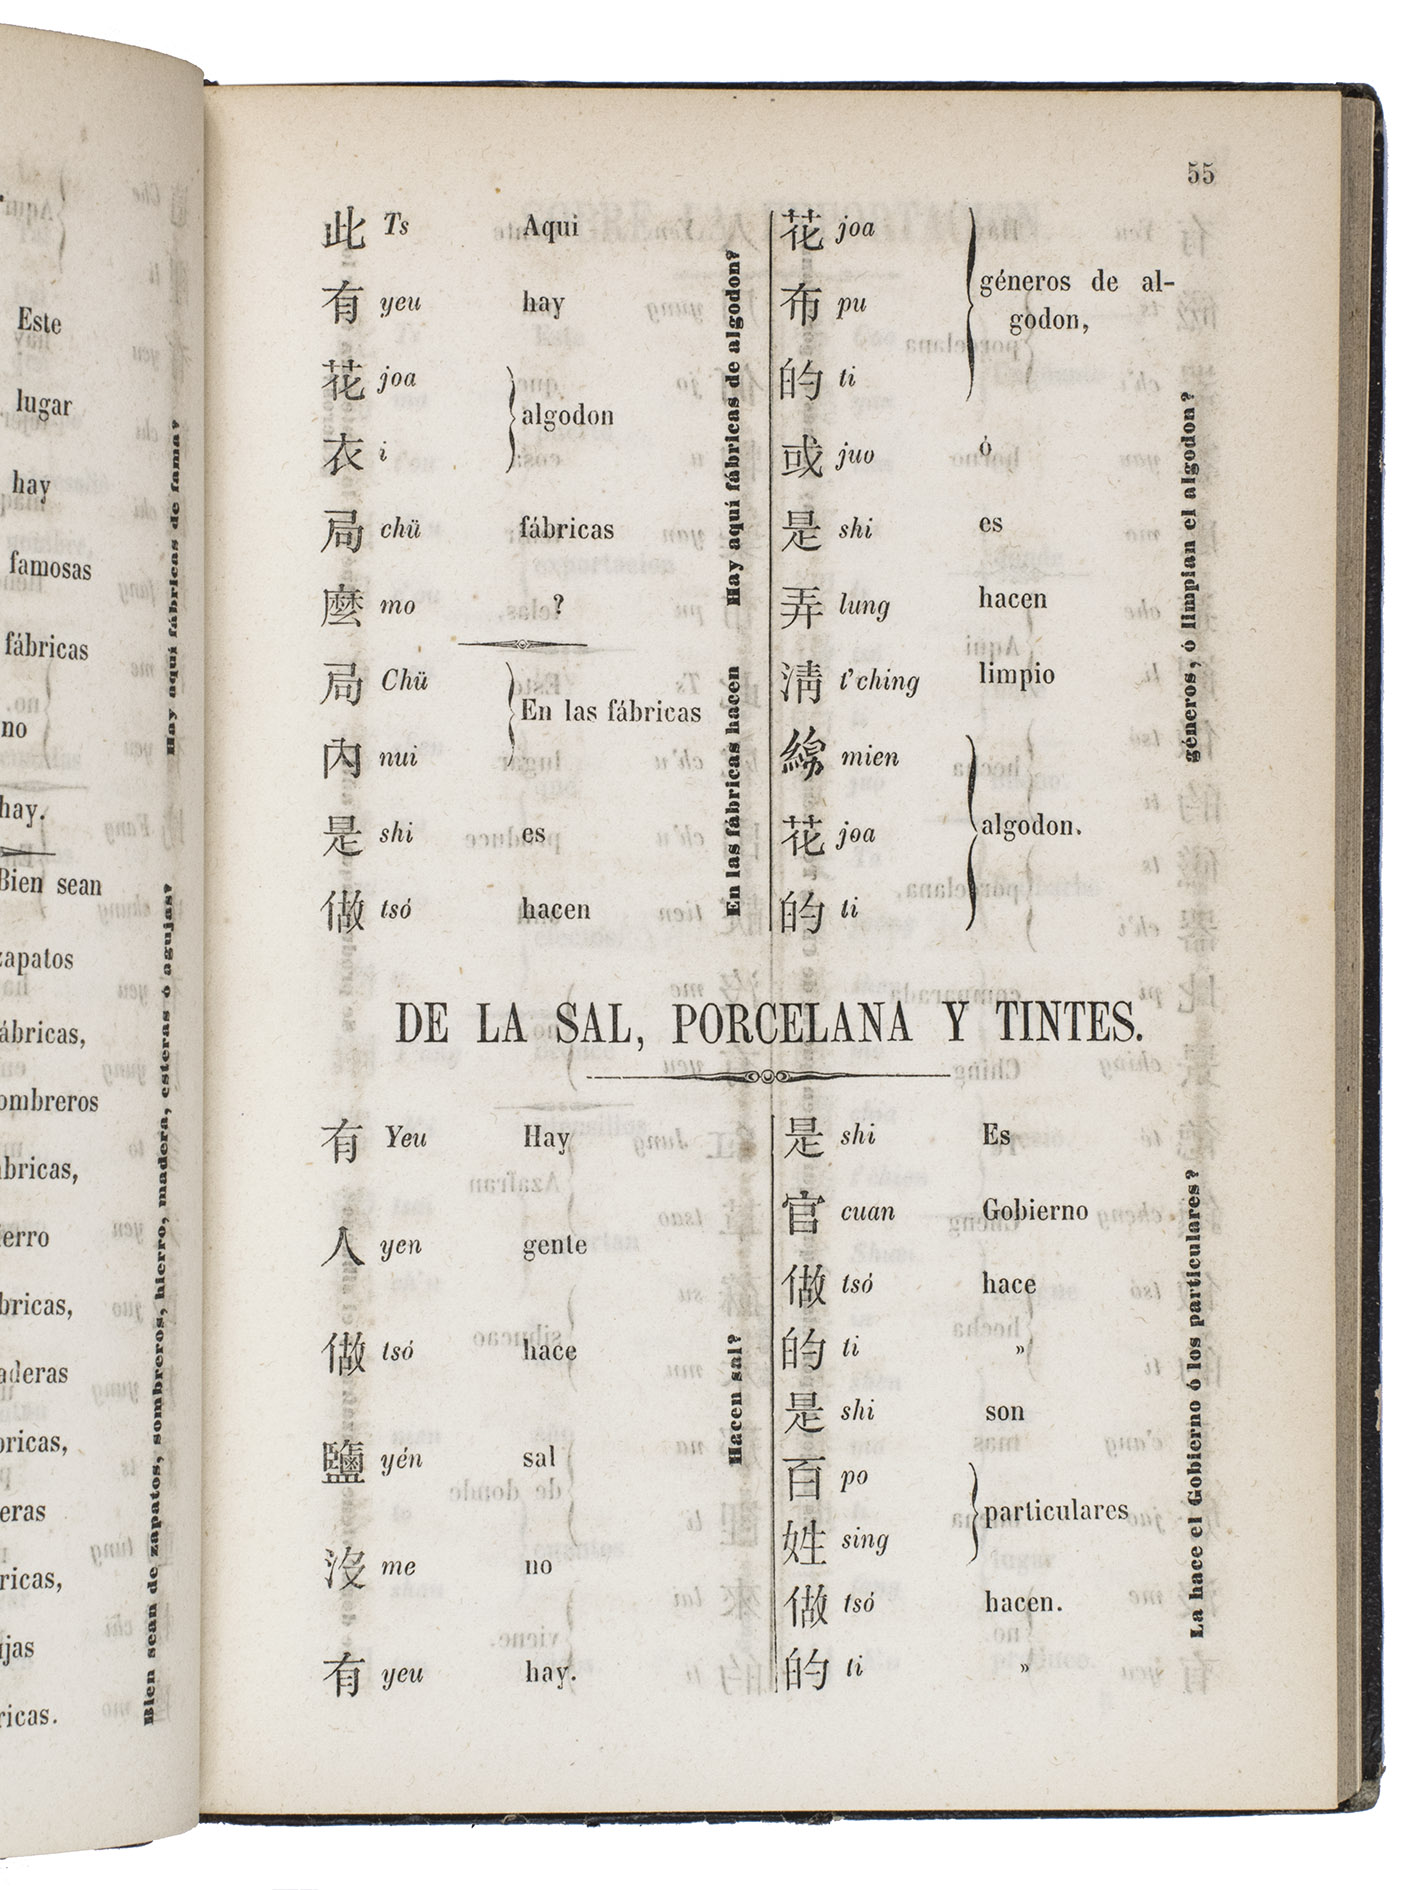 Este
lugar
hay
famosas
fábricas
no
hay.
Bien sean
zapatos
fábricas,
sombreros
Hay aquí fábricas de fama?
Bien sean de zapatos, sombreros, hierro, madera, esteras ó agujas?
55
此 Ts Aqui
有 yeu hay
花 joa
衣 i
algodon
局 chü fábricas
麼 mo ?
Hay aquí fábricas de algodon?
局 Chü
內 nui
En las fábricas
是 shi es
做 tsó hacen
En las fábricas hacen
花 joa
布 pu
的 ti
géneros de al-
godon,
或 juo ó
是 shi es
弄 lung hacen
淸 t'ching limpio
綿 mien
花 joa
的 ti
algodon.
géneros, ó limpian el algodon?
DE LA SAL, PORCELANA Y TINTES.
有 Yeu Hay
人 yen gente
做 tsó hace
鹽 yén sal
沒 me no
有 yeu hay.
Hacen sal?
是 shi Es
官 cuan Gobierno
做 tsó hace
的 ti »
是 shi son
百 po
姓 sing
particulares
做 tsó hacen.
的 ti »
La hace el Gobierno ó los particulares?